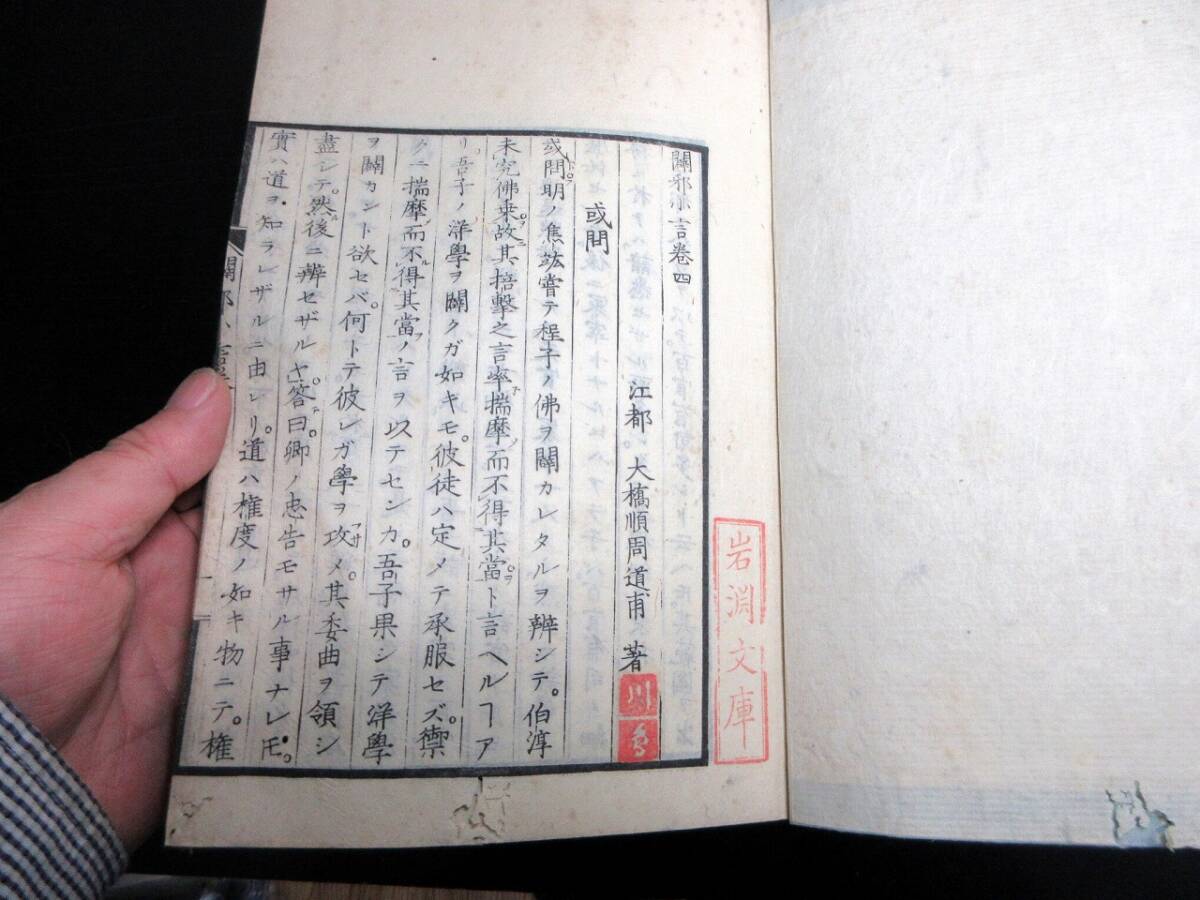 闢邪小言卷四
江都 大橋順周道甫 著
或問
或問明ノ焦竑嘗テ程子ノ佛ヲ闢カレタルヲ辨シテ。伯淳
未究佛乗。故其掊擊之言率揣摩而不得其當。ト言ヘルヿア
リ。吾子ノ洋學ヲ闢クガ如キモ。彼徒ハ定メテ承服セズ。禦
クニ揣摩而不得其當ノ言ヲ以テセンカ。吾子果シテ洋學
ヲ闢カント欲セバ。何トテ彼レガ學ヲ攻メ。其委曲ヲ領シ
盡シテ。然後ニ辨セザルヤ。答曰。卿ノ忠告モサル事ナレ𪜈。
實ハ道ヲ知ラレザルニ由レリ。道ハ權度ノ如キ物ニテ。權
岩淵文庫